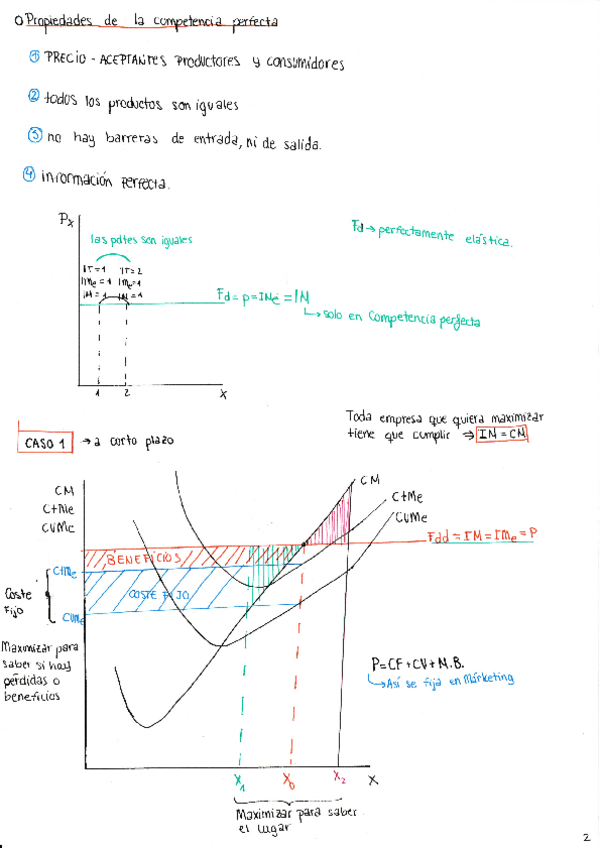 o Propiedades de la competencia perfecta
① PRECIO - ACEPTANTES PRODUCTORES Y CONSUMIDORES
② todos los productos son iguales
③ no hay barreras de entrada, ni de salida.
④ información perfecta.
Px
las pdtes son iguales
Fd → perfectamente elástica.
IT = 1 IT = 2
IMe = 1 IMe = 1
IM = 1 IM = 1
Fd = p = IMe = IM
↳ solo en Competencia perfecta
1 2 X
CASO 1 → a corto plazo
Toda empresa que quiera maximizar
tiene que cumplir ⇒ IM = CM
CM
CTMe
CVMe
CM
CTMe
CVMe
Fdd = IM = IMe = P
BENEFICIOS
CTMe
COSTE FIJO
Coste
Fijo
CVMe
Maximizar para
saber si hay
pérdidas o
beneficios
P = CF + CV + M.B.
↳ Así se fija en Márketing
X1 X0 X2 X
Maximizar para saber
el lugar
2